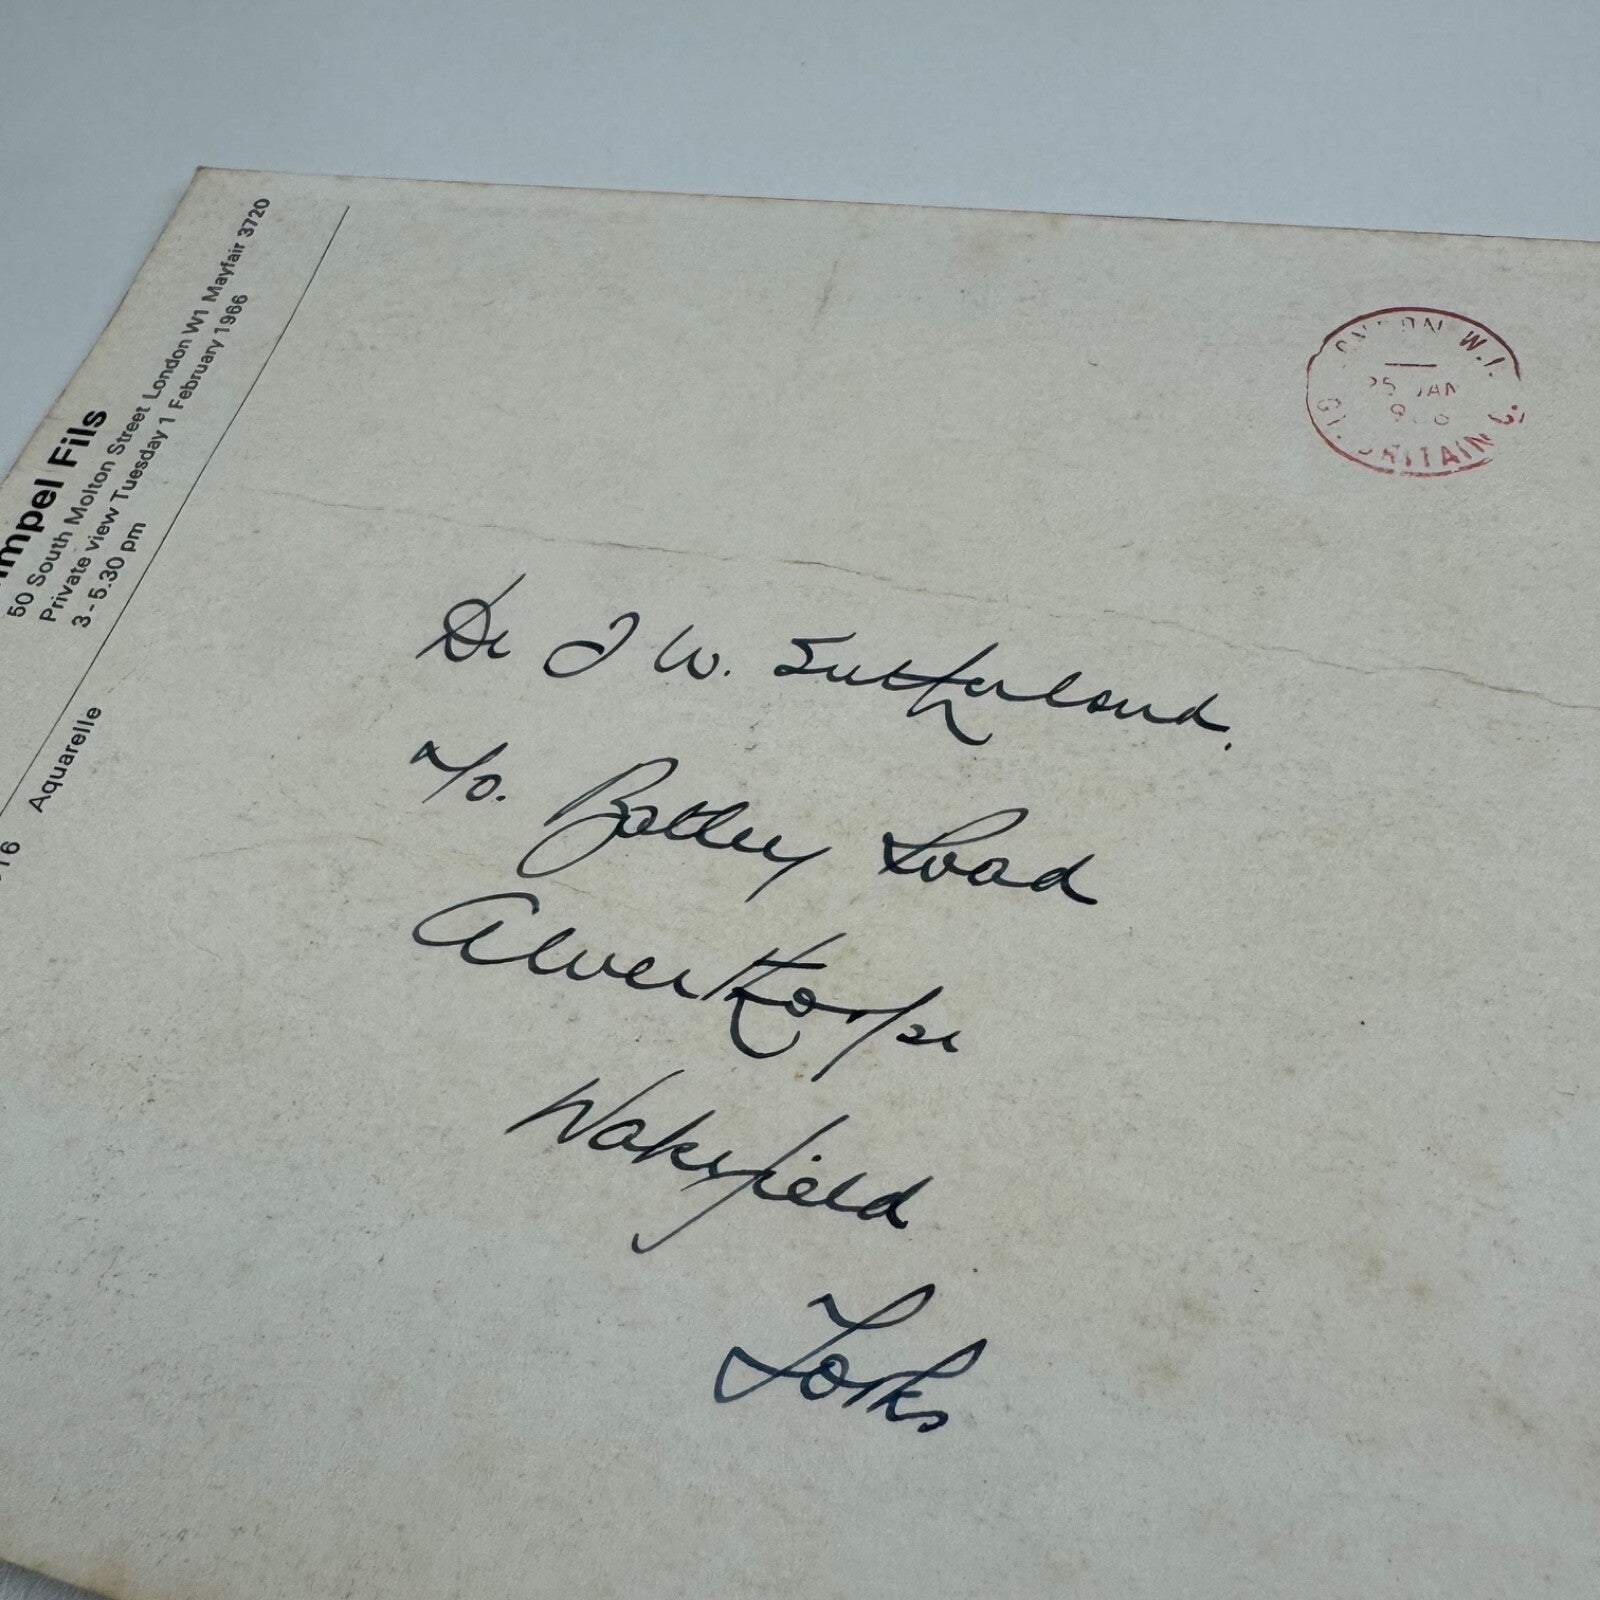 mpel Fils
50 South Molton Street London W1 Mayfair 3720
Private view Tuesday 1 February 1966
3-5.30 pm
16 Aquarelle
LONDON W.1.
25 JAN
GT. BRITAIN
Dr J W. Sutherland.
Batley Road
Alverthorpe
Wakefield
Yorks